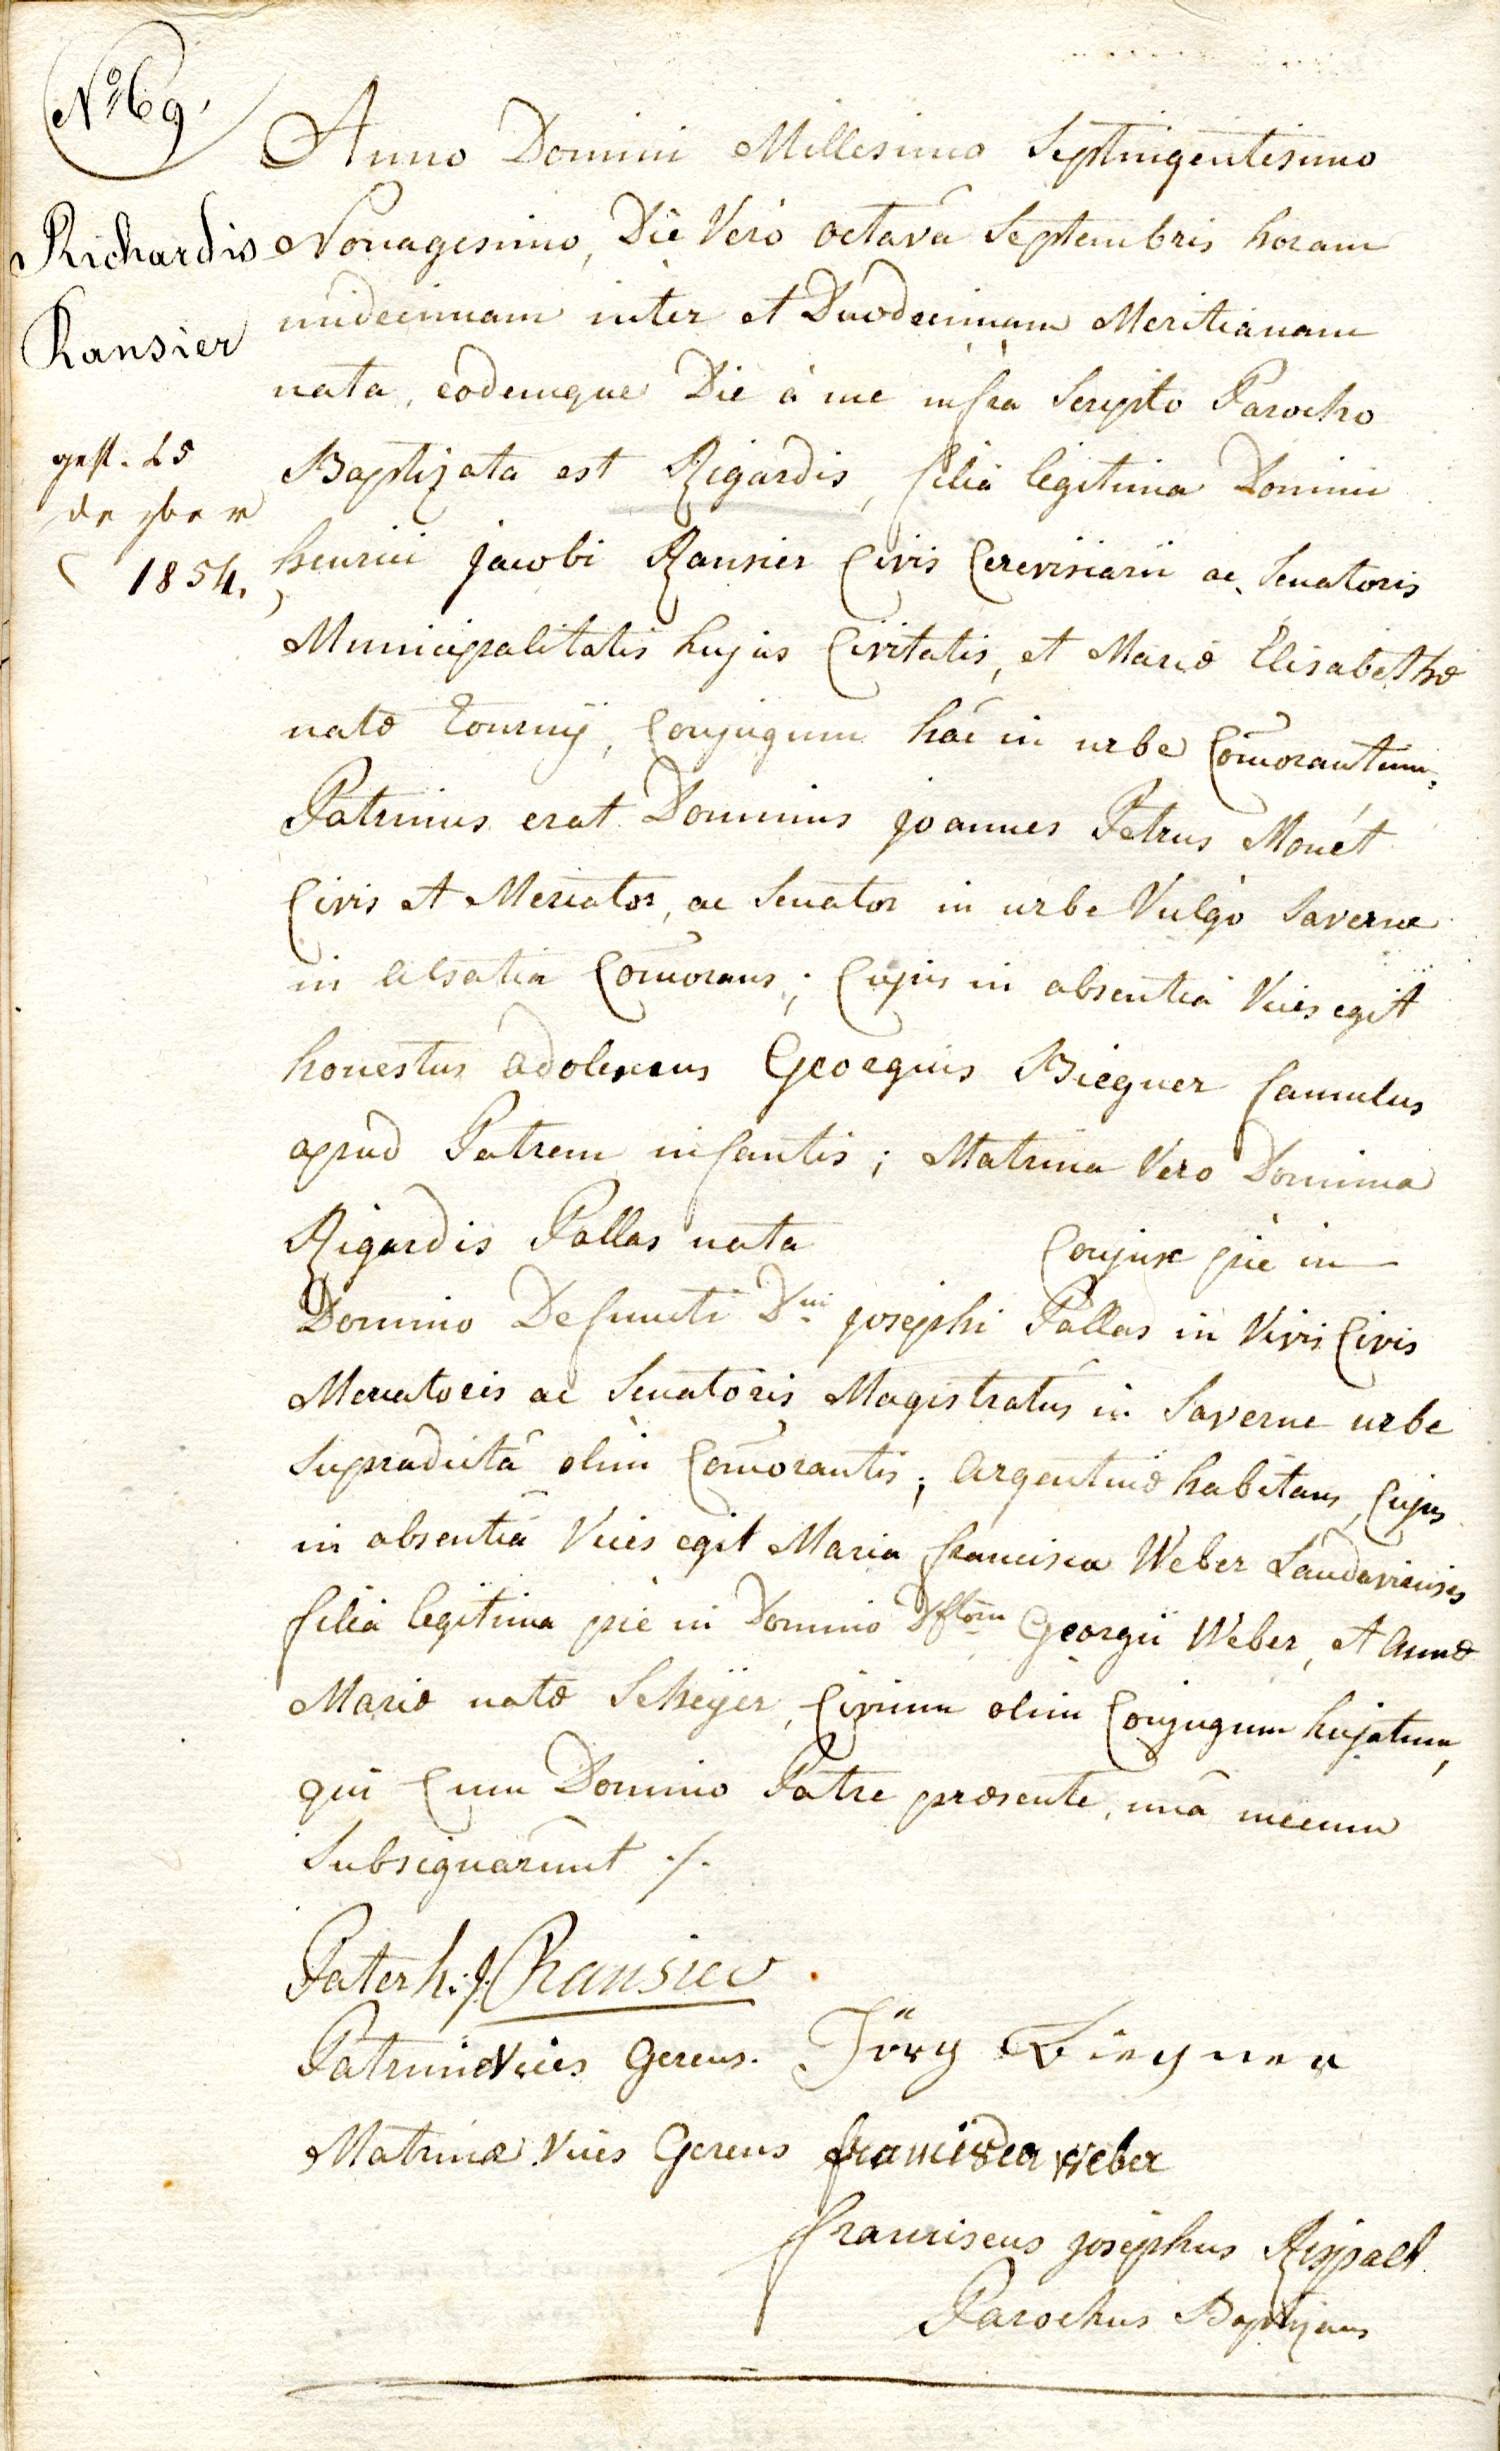 No 69.
Richardis
Ransier
gest. 25
dezber
1854.
Anno Domini Millesimo Septingentesimo
Nonagesimo, Die Vero octavâ Septembris horam
undecimam inter et Duodecimam Meritianam
nata, eodemque Die à me infra Scripto Parocho
Baptizata est Rigardis, filia legitima Domini
henrici jacobi Ransier Civis Cerevisiarii ac Senatoris
Municipalitatis hujus Civitatis, et Mariæ Elisabethæ
natæ Tourny, Conjugum hac in urbe Com̄orantium.
Patrinus erat Dominus joannes Petrus Monét
Civis et Mercator, ac Senator in urbe Vulgò Saverne
in alsatia Com̄orans; Cujus in absentiâ Vices egit
honestus adolescens Georgius Biegner famulus
apud Patrem infantis; Matrina Vero Domina
Rigardis Pallas nata Conjux piè in
Domino Defuncti Dni josephi Pallas in Vivis Civis
Mercatoris ac Senatoris Magistratûs in Saverne urbe
supradictâ olim Com̄orantis; argentinæ habitans, Cujus
in absentiâ Vices egit Maria francisca Weber Landaviensis
filia legitima piè in Domino Dftōrū Georgii Weber, et annæ
Mariæ natæ Scheÿer, Civium olim Conjugum hujatum,
qui Cum Domino Patre præsente, unâ mecum
Subsignarunt ./.
Pater h: j: Ransier
Patrini Vices Gerens. Jörg Biegner
Matrinæ Vices Gerens francisca weber
franciscus josephus Rispalt
Parochus Baptizans